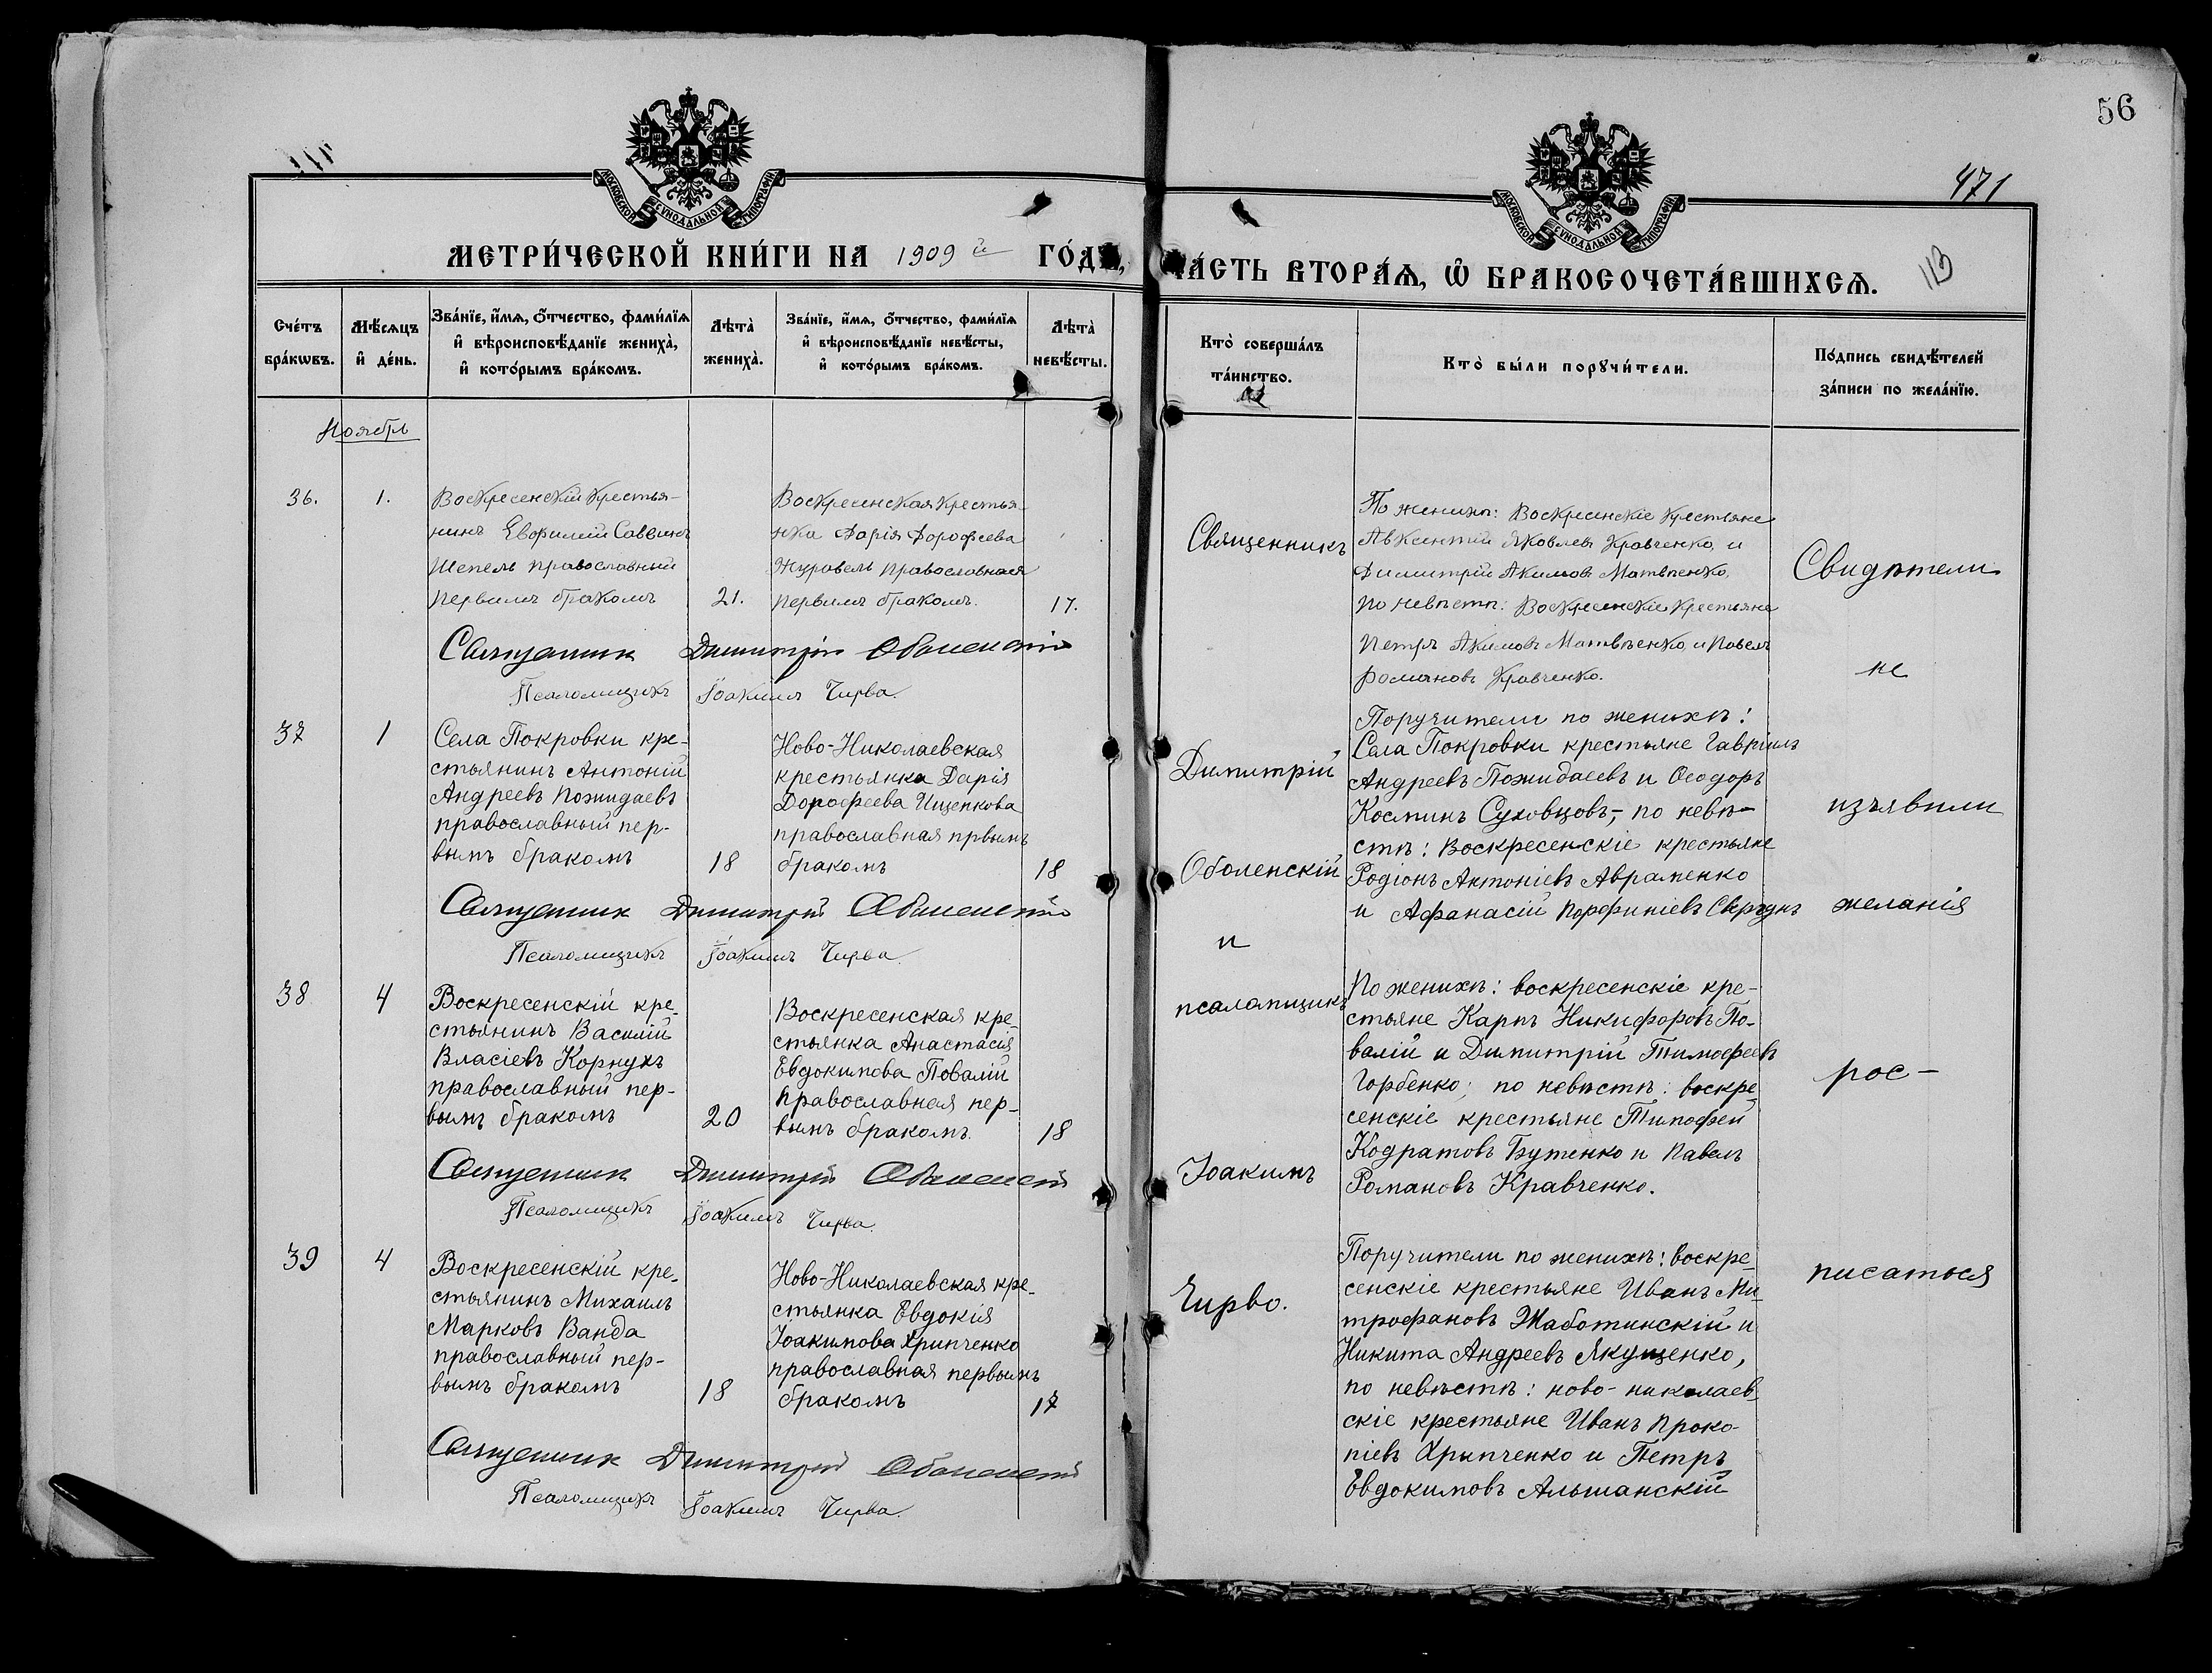 56
471
113
МОСКОВСКОЙ СѴНОДАЛЬНОЙ ТИПОГРАФІИ
МОСКОВСКОЙ СѴНОДАЛЬНОЙ ТИПОГРАФІИ
МЕТРИ́ЧЕСКОЙ КНИ́ГИ НА 1909 й ГО́ДЪ,
ЧА́СТЬ ВТОРА́Ѧ, Ѡ҆ БРАКОСОЧЕТА́ВШИХСѦ.
Сче́тъ
бра́кѡвъ.
Мѣ́сѧцъ
и҆ де́нь.
Зва́нїе, и҆́мѧ, ѻ҆́тчество, фами́лїѧ
и҆ вѣроисповѣ́данїе жениха̀,
и҆ кото́рымъ бра́комъ.
Лѣта̀
жениха̀.
Зва́нїе, и҆́мѧ, ѻ҆́тчество, фами́лїѧ
и҆ вѣроисповѣ́данїе невѣ́сты,
и҆ кото́рымъ бра́комъ.
Лѣта̀
невѣ́сты.
Кто̀ соверша́лъ
та́инство.
Кто̀ бы́ли порꙋчи́тели.
По́дпись свидѣ́телей
за́писи по жела́нїю.
Ноябрь
36.
1.
Воскресенскій крестья-
нинъ Евфимій Саввинъ
Шепель православный
первымъ бракомъ
21.
Воскресенская крестья
нка Дарія Дорофеева
Журавель православная
первымъ бракомъ.
17.
По женихѣ: Воскресенскіе крестьяне
Авксентій Яковлевъ Кравченко, и
Димитрій Акимовъ Матвѣенко,
по невѣстѣ: Воскресенскіе крестьяне
Петръ Акимовъ Матвѣенко, и Павелъ
Романовъ Кравченко.
Священникъ Димитрій Оболенскій
Псаломщикъ Іоакимъ Чирва
37
1
Села Покровки кре-
стьянинъ Антоній
Андреевъ Пожидаевъ
православный пер-
вымъ бракомъ
18
Ново-Николаевская
крестьянка Дарія
Дорофеева Ищенкова
православная првымъ
бракомъ
18
Поручители по женихѣ:
Села Покровки крестьяне Гавріилъ
Андреевъ Пожидаевъ и Ѳеодоръ
Косминъ Суховцовъ,- по невѣ-
стѣ: Воскресенскіе крестьяне
Родіонъ Антоніевъ Авраменко
и Афанасій Порфиріевъ
Священникъ Димитрій Оболенскій
Псаломщикъ Іоакимъ Чирва.
38
4
Воскресенскій кре-
стьянинъ Василій
Власіевъ Корнухъ
православный пер-
вымъ бракомъ
20
Воскресенская кре-
стьянка Анастасія
Евдокимова Повалій
православная пер-
вымъ бракомъ.
18
По женихѣ: воскресенскіе кре-
стьяне Карпъ Никифоровъ По-
валій и Димитрій Тимофеевъ
Горбенко; по невѣстѣ: воскре-
сенскіе крестьяне Тимофей
Кодратовъ Бутенко и Павелъ
Романовъ Кравченко.
Священникъ Димитрій Оболенскій
Псаломщикъ Іоакимъ Чирва.
39
4
Воскресенскій кре-
стьянинъ Михаилъ
Марковъ Ванда
православный пер-
вымъ бракомъ
18
Ново-Николаевская кре-
стьянка Евдокія
Іоакимова Хрипченко
православная первымъ
бракомъ
17
Поручители по женихѣ: воскре-
сенскіе крестьяне Иванъ Ми-
трофановъ Жаботинскій и
Никита Андреевъ Якущенко,
по невѣстѣ: ново-николаев-
скіе крестьяне Иванъ Проко-
піевъ Хрипченко и Петръ
Евдокимовъ Альшанскій
Священникъ Димитрій Оболенскій
Псаломщикъ Іоакимъ Чирва.
Священникъ
Димитрій
Оболенскій
и
псаломщикъ
Іоакимъ
Чирво.
Свидѣтели
не
изъявили
желанія
рос-
писаться